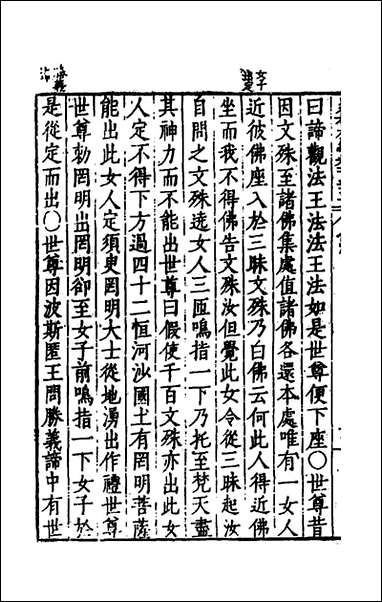 曰諦觀法王法法王法如是世尊便下座〇世尊昔
因文殊至諸佛集處值諸佛各還本處唯有一女人
近彼佛座入於三昧文殊乃白佛云何此人得近佛
坐而我不得佛告文殊汝但覺此女令從三昧起汝
自問之文殊遶女人三匝鳴指一下乃托至梵天盡
其神力而不能出世尊曰假使千百文殊亦出此女
人定不得下方過四十二恒河沙國土有罔明菩薩
能出此女人定須臾罔明大士從地湧出作禮世尊
世尊勅罔明出罔明卻至女子前鳴指一下女子於
是從定而出〇世尊因波斯匿王問勝義諦中有世